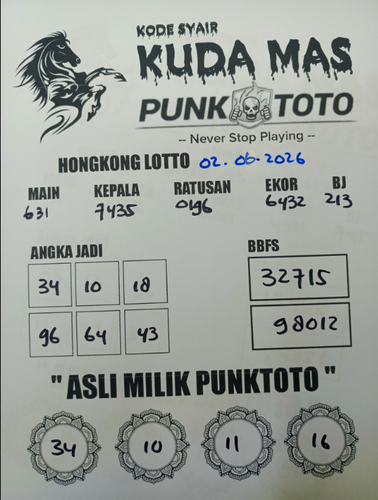 KODE SYAIR
KUDA MAS
PUNK TOTO
-- Never Stop Playing --
HONGKONG LOTTO 02.06.2026
MAIN KEPALA RATUSAN EKOR BJ
631 7435 0196 6432 213
ANGKA JADI BBFS
34 10 18 32715
96 64 43 98012
" ASLI MILIK PUNKTOTO "
34 10 11 16